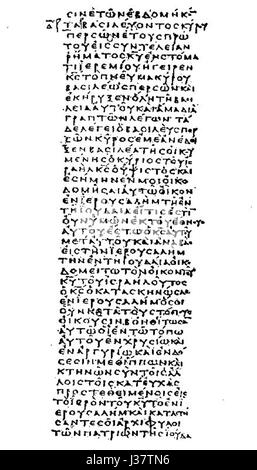 ϹΙΝΕΤΩΝΕΒΔΟΜΗΚ
ΤΑΒΑϹΙΛΕΥΟΝΤΟϹΚΥΡΟΥ
ΠΕΡϹΩΝΕΤΟΥϹΠΡΩ
ΤΟΥΕΙϹϹΥΝΤΕΛΕΙΑΝ
ΡΗΜΑΤΟϹΚΥΕΝϹΤΟΜΑ
ΤΙΙΕΡΕΜΙΟΥΗΓΕΙΡΕΝ
ΚϹΤΟΠΝΕΥΜΑΚΥΡΟΥ
ΒΑϹΙΛΕΩϹΠΕΡϹΩΝΚΑΙ
ΕΚΗΡΥΞΕΝΟΛΗΤΗΒΑ
ϹΙΛΕΙΑΑΥΤΟΥΚΑΙΑΜΑΔΙΑ
ΓΡΑΠΤΩΝΛΕΓΩΝΤΑ
ΔΕΛΕΓΕΙΟΒΑϹΙΛΕΥϹΠΕΡ
ϹΩΝΚΥΡΟϹΕΜΕΑΝΕΔΕΙ
ΞΕΝΒΑϹΙΛΕΑΤΗϹΟΙΚΟΥ
ΜΕΝΗϹΟΚΥΡΙΟϹΤΟΥΙϹ
ΡΑΗΛΚϹΟΥΨΙϹΤΟϹΚΑΙ
ΕϹΗΜΗΝΕΝΜΟΙΟΙΚΟ
ΔΟΜΗϹΑΙΑΥΤΩΟΙΚΟΝ
ΕΝΙΕΡΟΥϹΑΛΗΜΤΗΕΝ
ΤΗΙΟΥΔΑΙΑΕΙΤΙϹΕϹΤΙ
ΟΥΝΥΜΩΝΕΚΤΟΥΕΘΝΟΥϹ
ΑΥΤΟΥΕϹΤΩΟΚϹΑΥΤΟΥ
ΜΕΤΑΥΤΟΥΚΑΙΑΝΑΒΑϹ
ΕΙϹΤΗΝΙΕΡΟΥϹΑΛΗΜ
ΤΗΝΕΝΤΗΙΟΥΔΑΙΑΟΙΚΟ
ΔΟΜΕΙΤΩΤΟΝΟΙΚΟΝΤΟΥ
ΚΥΤΟΥΙϹΡΑΗΛΟΥΤΟϹ
ΟΚϹΟΚΑΤΑϹΚΗΝΩϹΑϹ
ΕΝΙΕΡΟΥϹΑΛΗΜΟϹΟΙ
ΟΥΝΚΑΤΑΤΟΥϹΤΟΠΟΥϹ
ΟΙΚΟΥϹΙΝΒΟΗΘΙΤΩϹΑ
ΑΥΤΩΟΙΕΝΤΩΤΟΠΩ
ΑΥΤΟΥΕΝΧΡΥϹΙΩΚΑΙ
ΕΝΑΡΓΥΡΙΩΚΑΙΕΝΔΟ
ϹΕϹΙΝΜΕΘΙΠΠΩΝΚΑΙ
ΚΤΗΝΩΝϹΥΝΤΟΙϹΑΛ
ΛΟΙϹΤΟΙϹΚΑΤΕΥΧΑϹ
ΠΡΟϹΤΕΘΕΙΜΕΝΟΙϹΕΙϹ
ΤΟΙΕΡΟΝΤΟΥΚΥΤΟΕΝΙ
ΕΡΟΥϹΑΛΗΜΚΑΙΚΑΤΑϹΤΑ
ϹΑΝΤΕϹΟΙΑΡΧΙΦΥΛΟΙ
ΤΩΝΠΑΤΡΙΩΝΤΗϹΙΟΥΔΑ